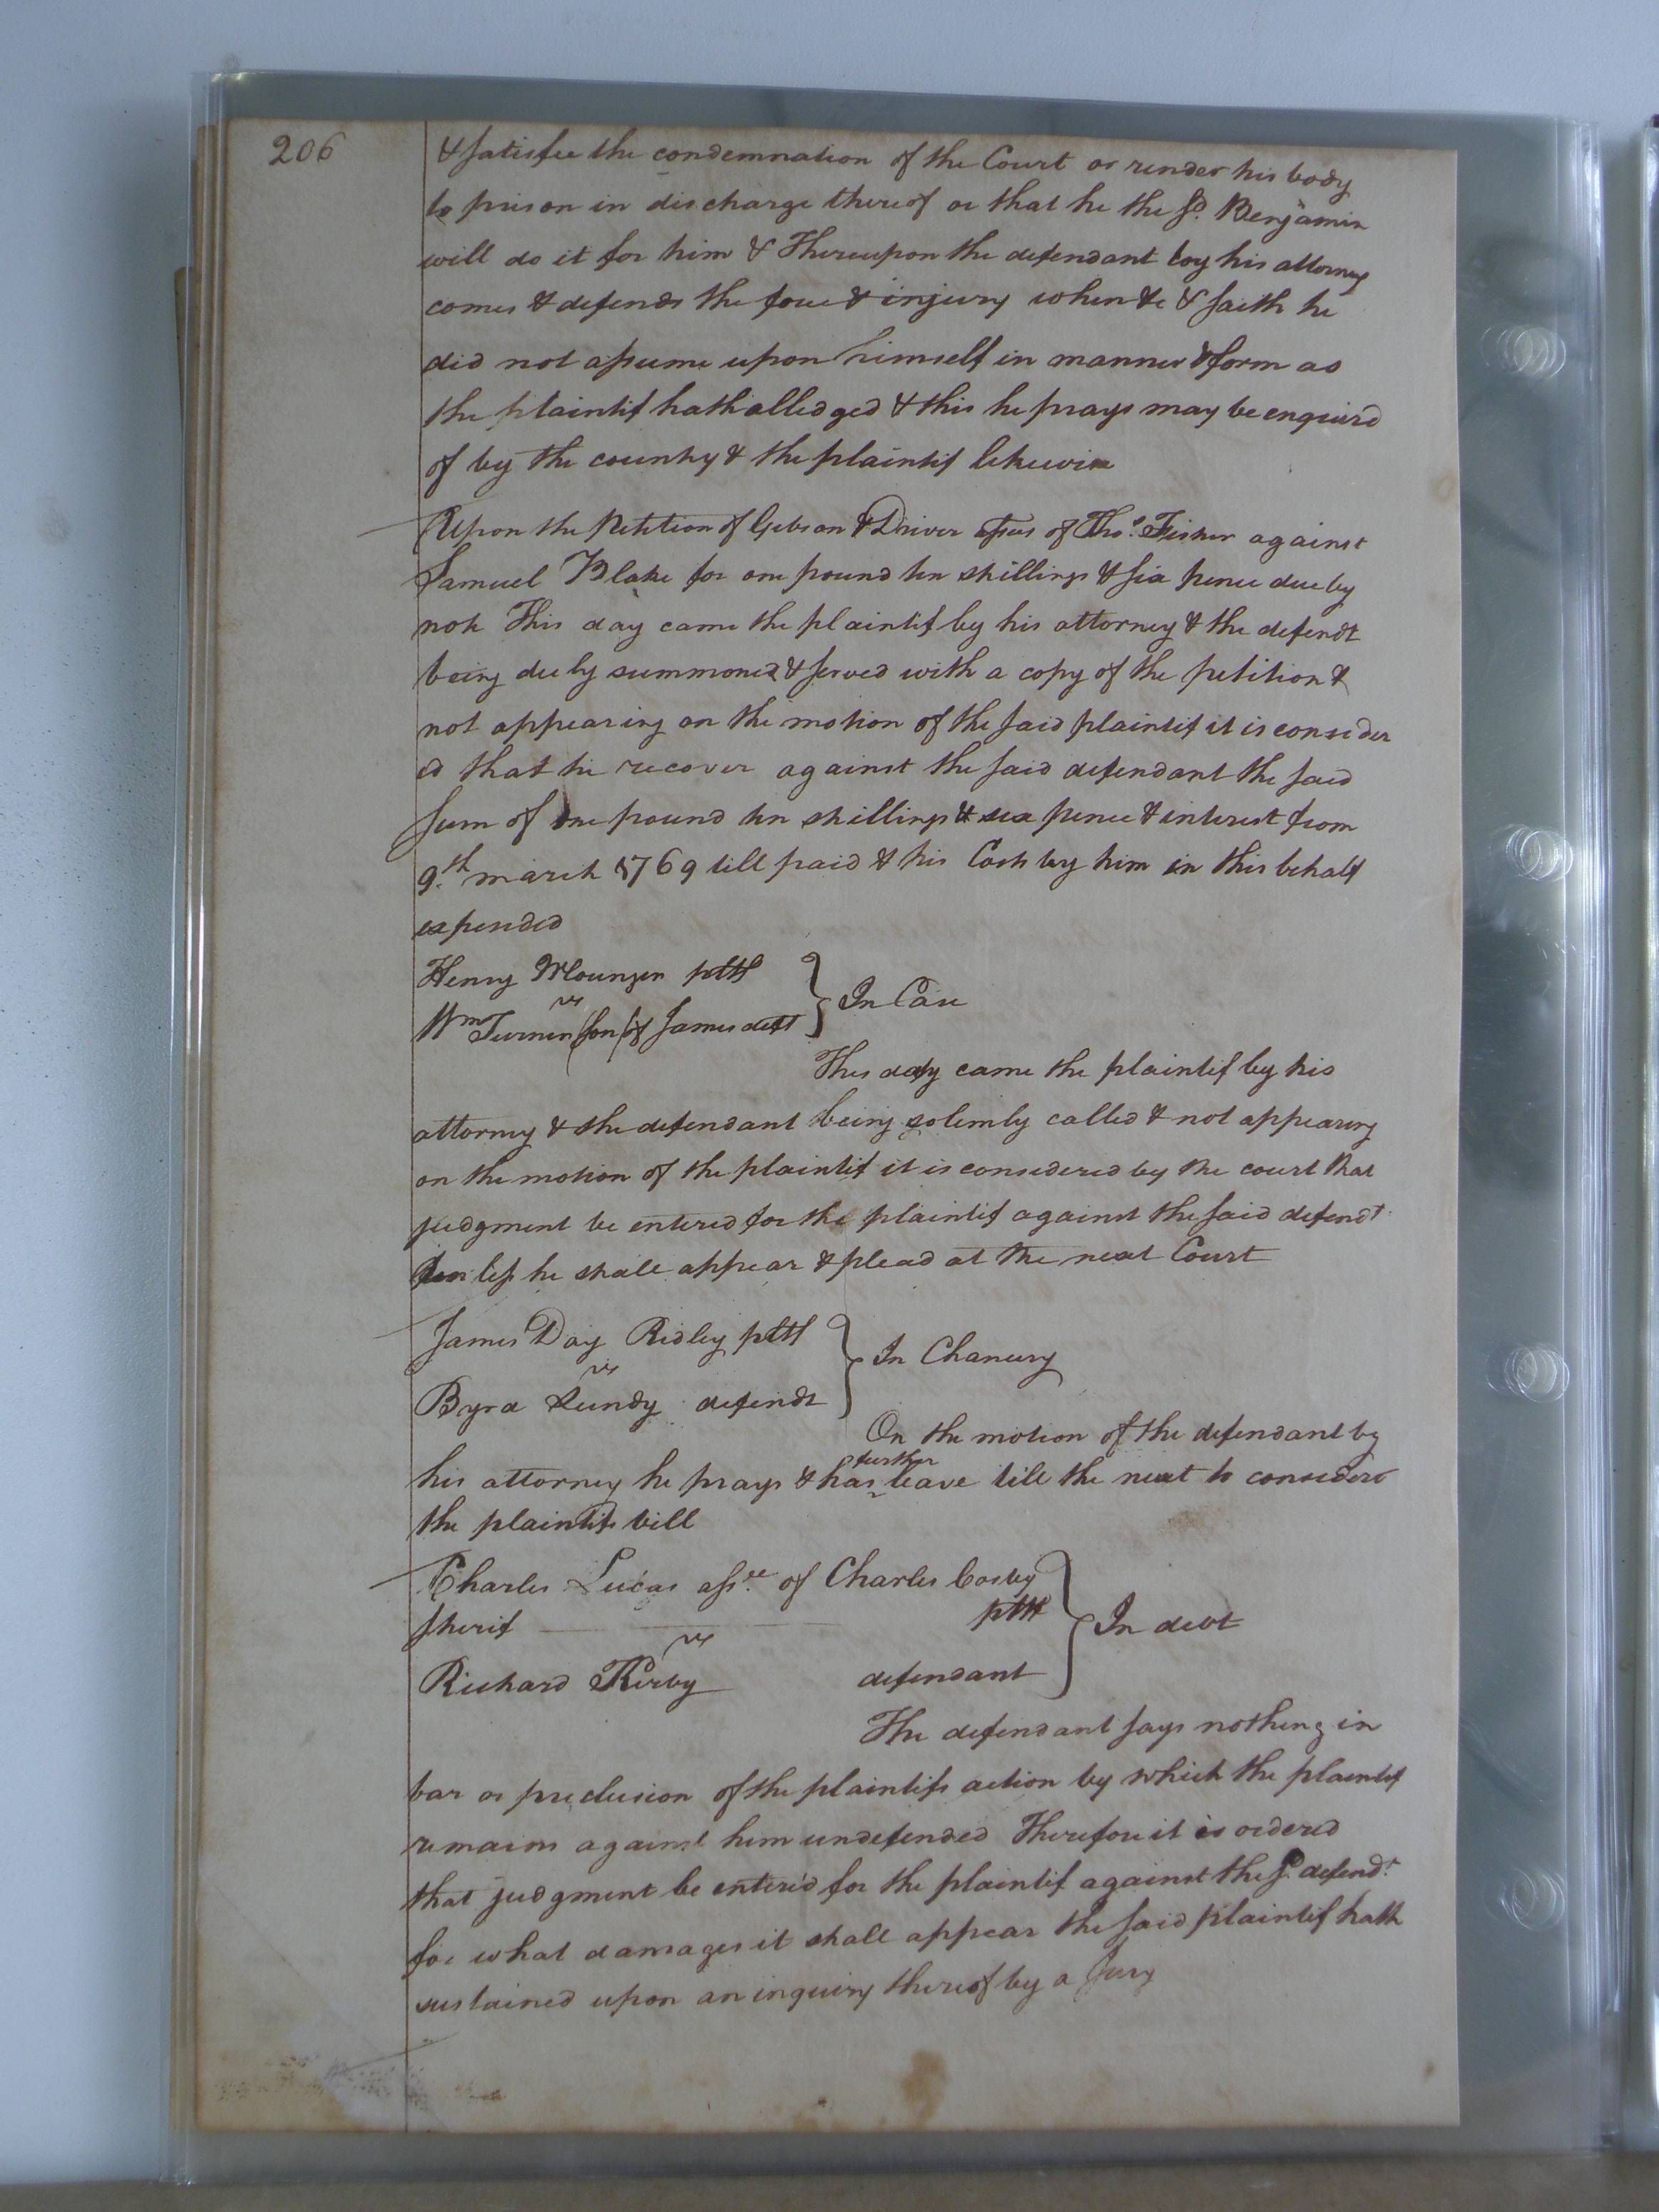 206
& satisfie the condemnation of the Court or render his body
to prison in discharge thereof or that he the sd. Benjamin
will do it for him & Thereupon the defendant by his attorney
comes & defends the force & injury when &c & saith he
did not assume upon himself in manner & form as
the plaintif hath alledged & this he prays may be enquird
of by the country & the plaintif likewise
Upon the Petition of Gibson & Driver assees of Thos. Fisher against
Samuel Blake for one pound ten shillings & six pence due by
note This day came the plaintif by his attorney & the defendt
being duly summoned & served with a copy of the petition &
not appearing on the motion of the said plaintif it is consider
ed that he recover against the said defendant the said
sum of one pound ten shillings & six pence & interest from
9.th march 1769 till paid & his Costs by him in this behalf
expended
Henry Mounger pltf
vs
Wm Turner (son of James deft
In Case
This day came the plaintif by his
attorney & the defendant being solemly called & not appearing
on the motion of the plaintif it is considered by the court that
judgment be entered for the plaintif against the said defendt.
unless he shall appear & plead at the next Court
James Day Ridley pltf
vs
Byrd Lundy defendt
In Chancery
On the motion of the defendant by
his attorney he prays & has further leave till the next to consider
the plaintifs bill
Charles Lucas assee. of Charles Cosby
sherif pltf
vs
Richard Kirby defendant
In debt
The defendant says nothing in
bar or preclusion of the plaintifs action by which the plaintif
remains against him undefended Therefore it is ordered
that judgment be enter'd for the plaintif against the sd. defendt.
for what damages it shall appear the said plaintif hath
sustained upon an inquiry thereof by a Jury